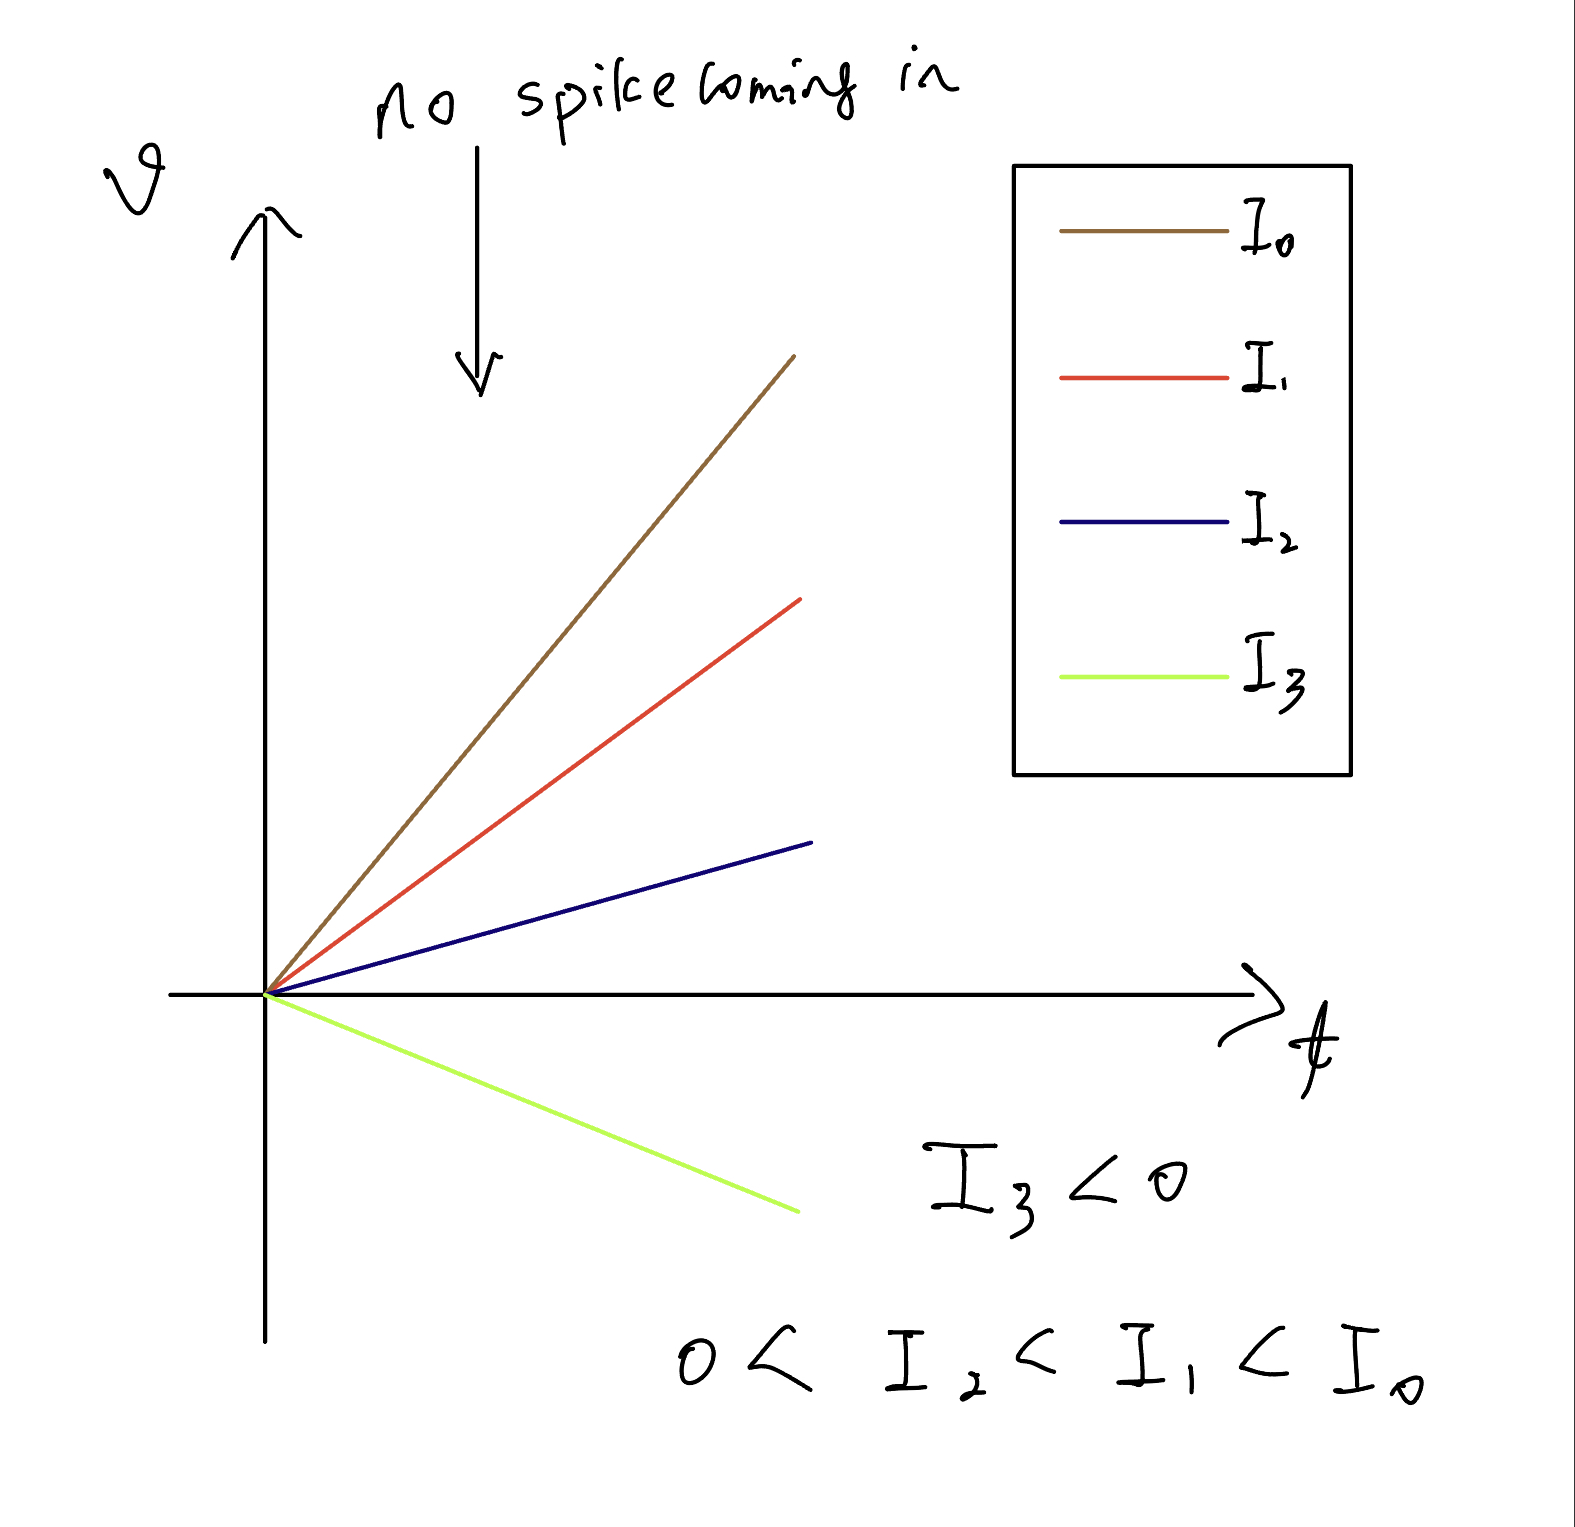 no spike coming in
v
I₀
I₁
I₂
I₃
t
I₃ < 0
0 < I₂ < I₁ < I₀